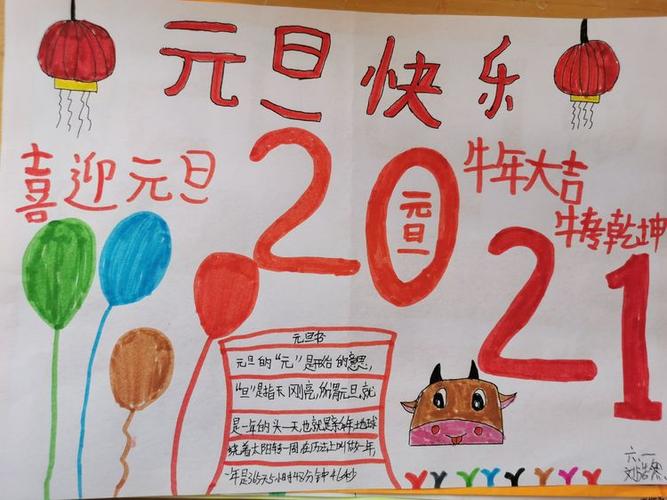 元旦快乐
喜迎元旦
2021
元旦
牛年大吉
牛转乾坤
元旦书
元旦的“元”是开始的意思,
“旦”是指天刚亮,所谓元旦就
是一年的头一天也就是新年地球
绕着太阳转一周在历法上叫做一年,
一年是365天5小时48分钟46秒
六、一